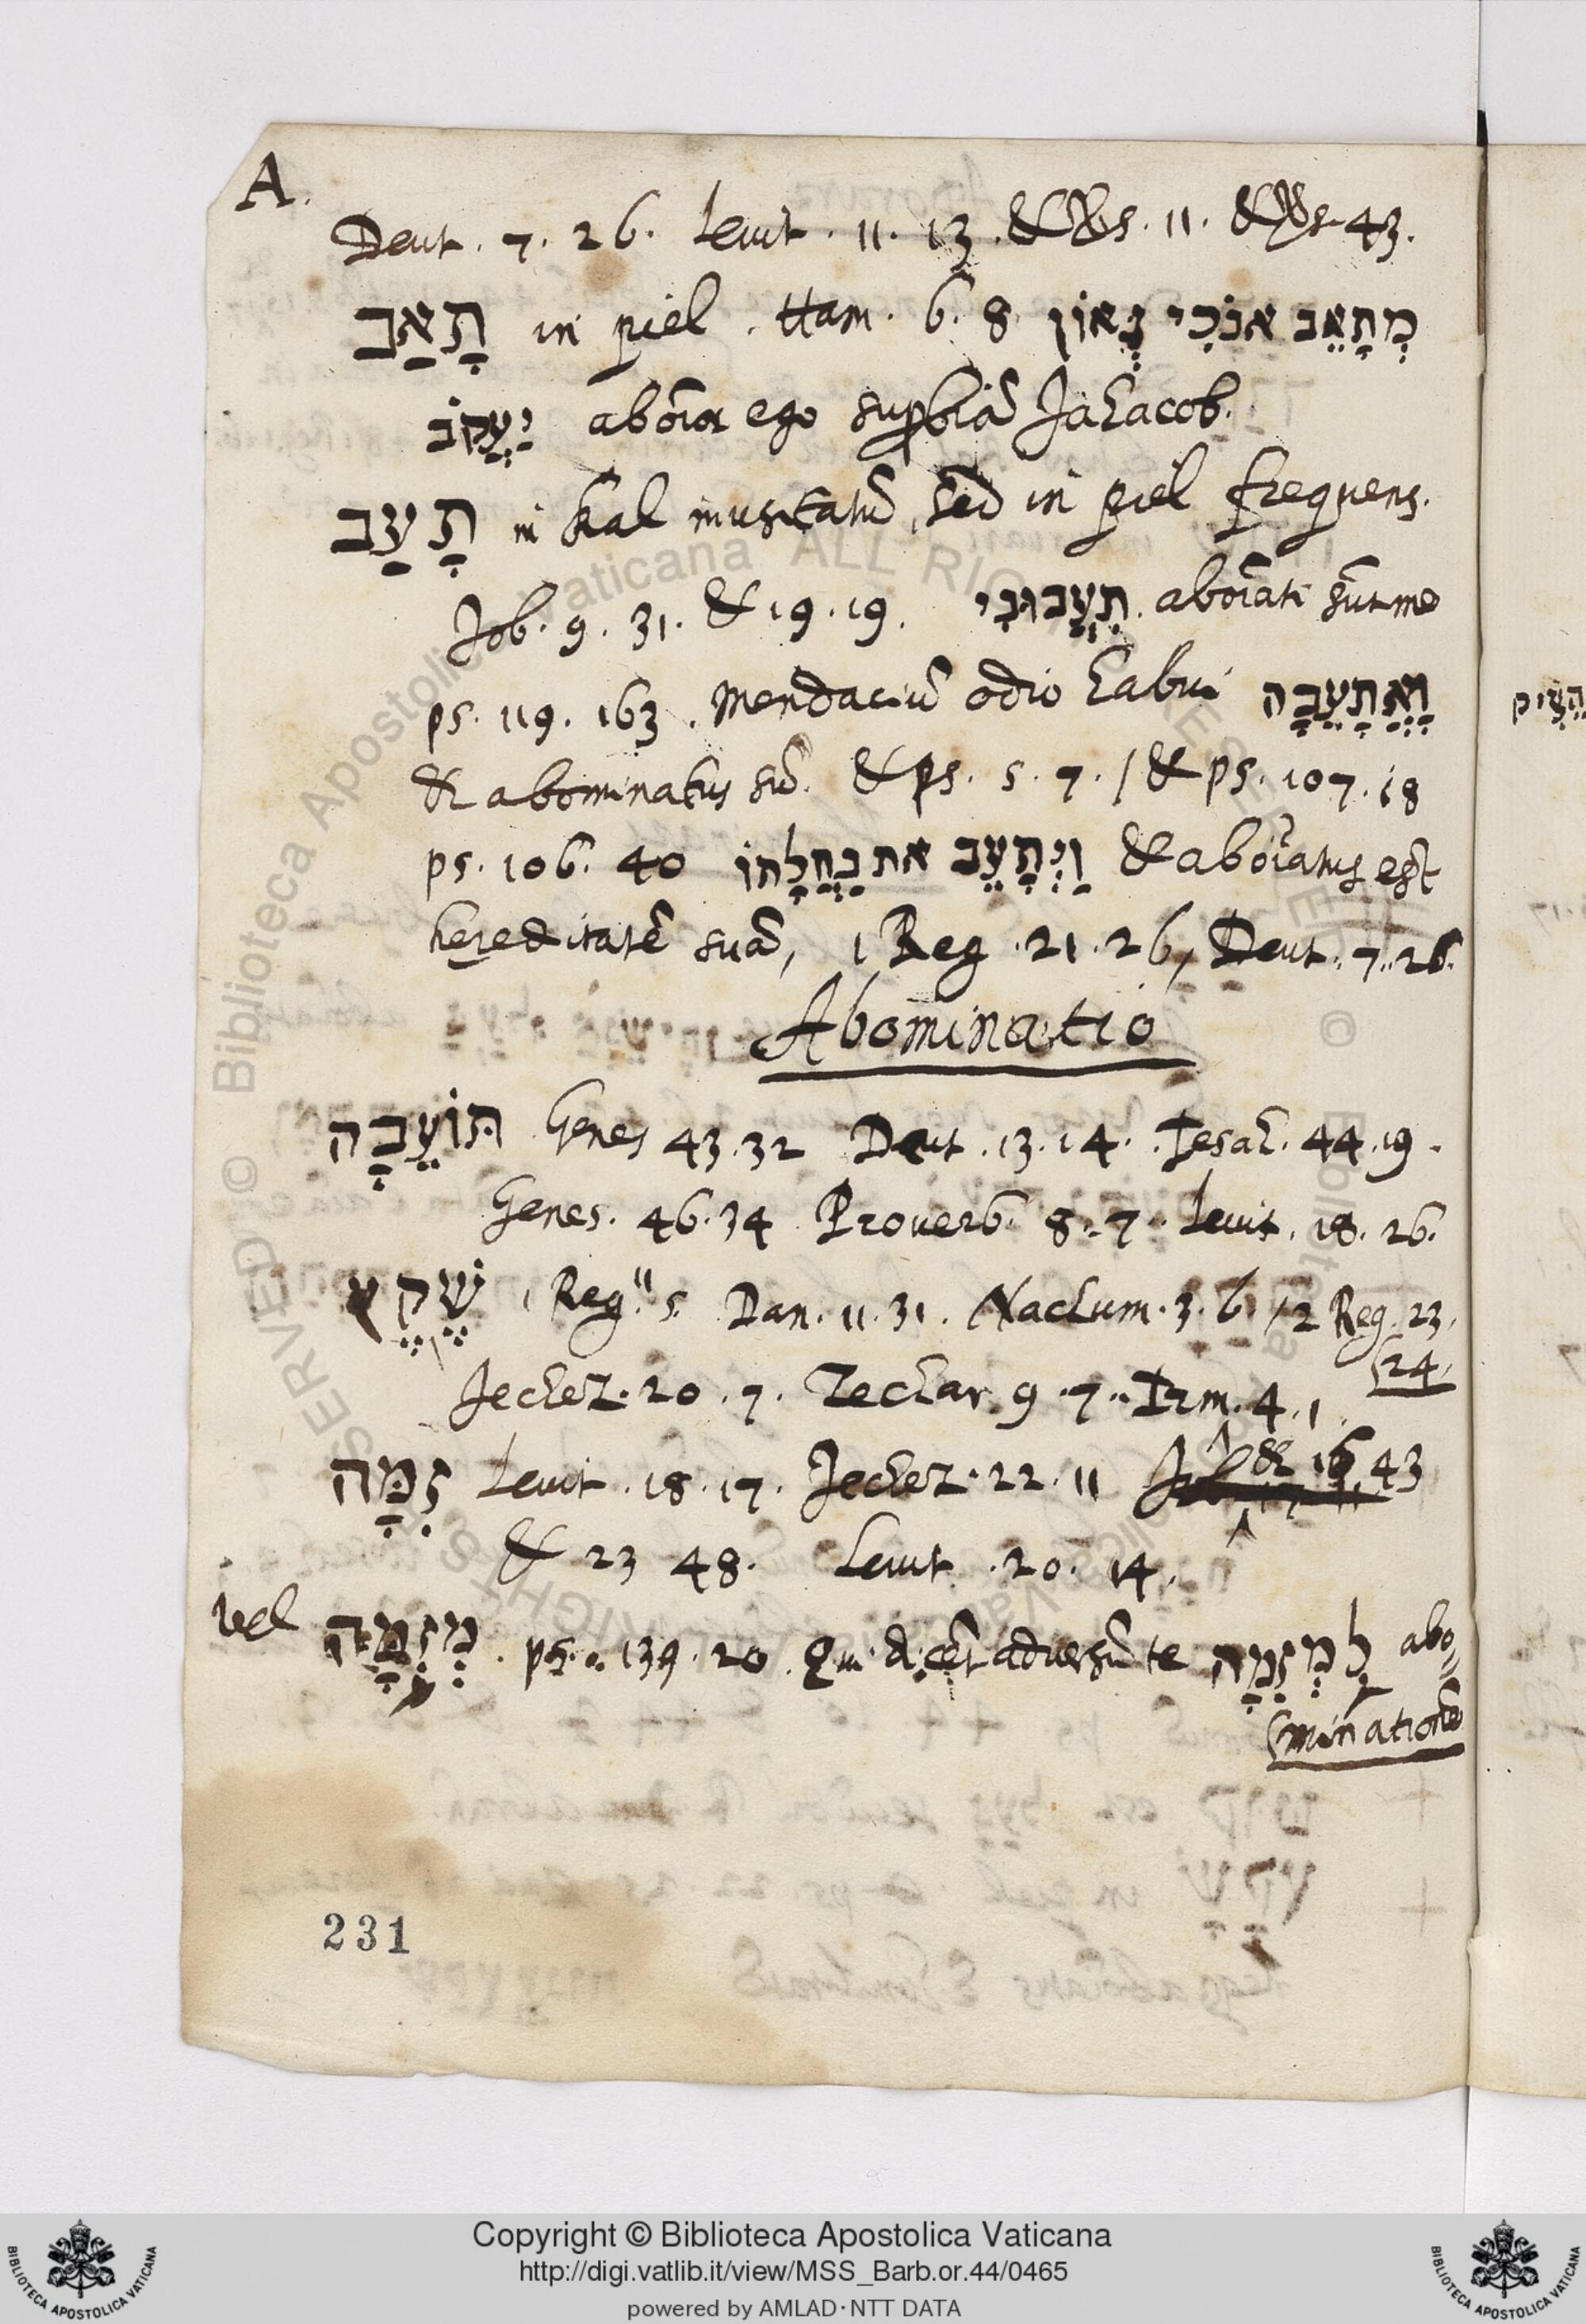 A.
Deut. 7. 26. Levit. 11. 13. & Ps. 11. & Ps. 43.
תָאַב in piel. Ham. 6. 8 מְתָאֵב אנֹכִי גְּאוֹן
יַעֲקֹב aboīor ego supbiā Jahacob.
תָעַב in kal inusitatū, sed in piel frequens.
Job. 9. 31. & 19. 19. תִעֲבוּנִי aboīati sūt me
ps. 119. 163. Mendaciū odio habui וַאֲתַעֵבָה
& abominatus sū. & ps. 5. 7. / & ps. 107. 18
ps. 106. 40 וַיְתָעֵב את נַחֲלָתוֹ & aboīatus est
hereditatē suā, 1 Reg. 21. 26, Deut. 7. 26.
Abominatio
תּוֹעֵבָה Genes 43. 32 Deut. 13. 14. Jesah. 44. 19.
Genes. 46. 34 Proverb. 8. 7. Levit. 18. 26.
שֶׁקֶץ 1 Reg. 11 5. Dan. 11. 31. Nachum. 3. 6 / 2 Reg. 23.
(24.
Jechez. 20. 7. Zechar. 9. 7. Irm. 4. 1
זִמָּה Levit. 18. 17. Jechez. 22. 11 & 16 43
& 23 48. Levit. 20. 14.
vel מְזִמָּה. ps. 139. 20. Qui dicēt adversū te לִמְזִמָה abo=
(minationē
231
Copyright © Biblioteca Apostolica Vaticana
http://digi.vatlib.it/view/MSS_Barb.or.44/0465
powered by AMLAD·NTT DATA